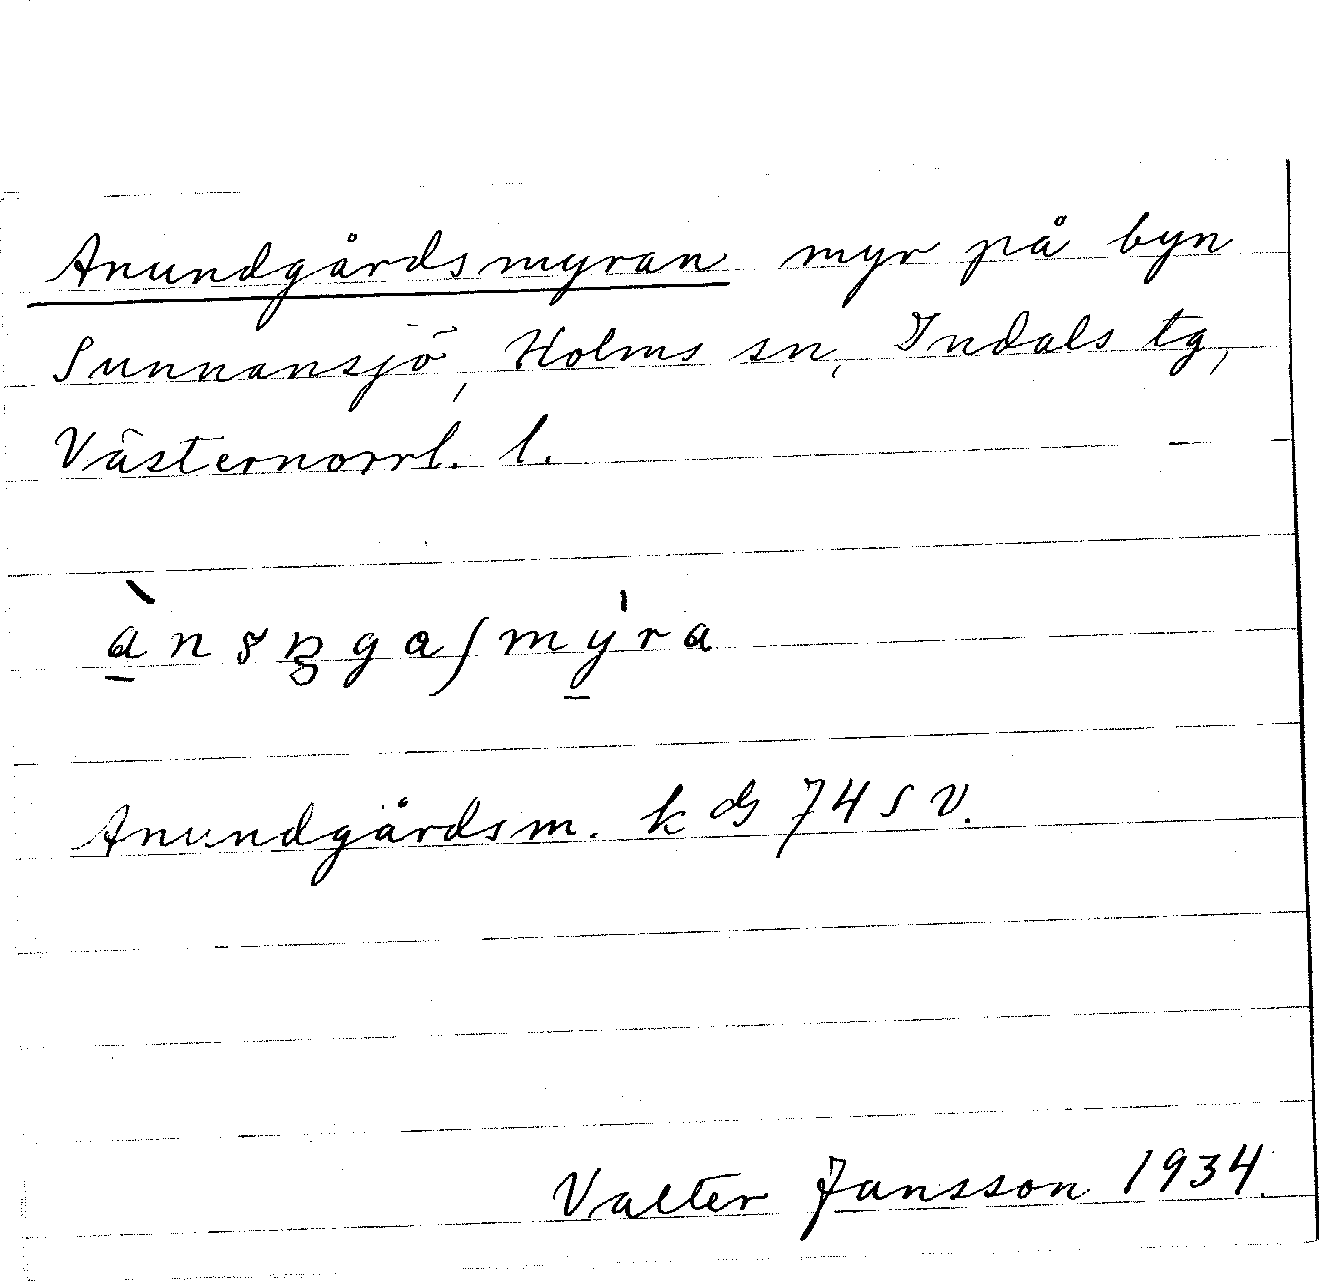 Anundgårdsmyran myr på byn
Sunnansjö, Holms sn, Indals tg,
Västernorrl. l.
Anundgårdsm. k ds 74 SV.
Valter Jansson 1934.